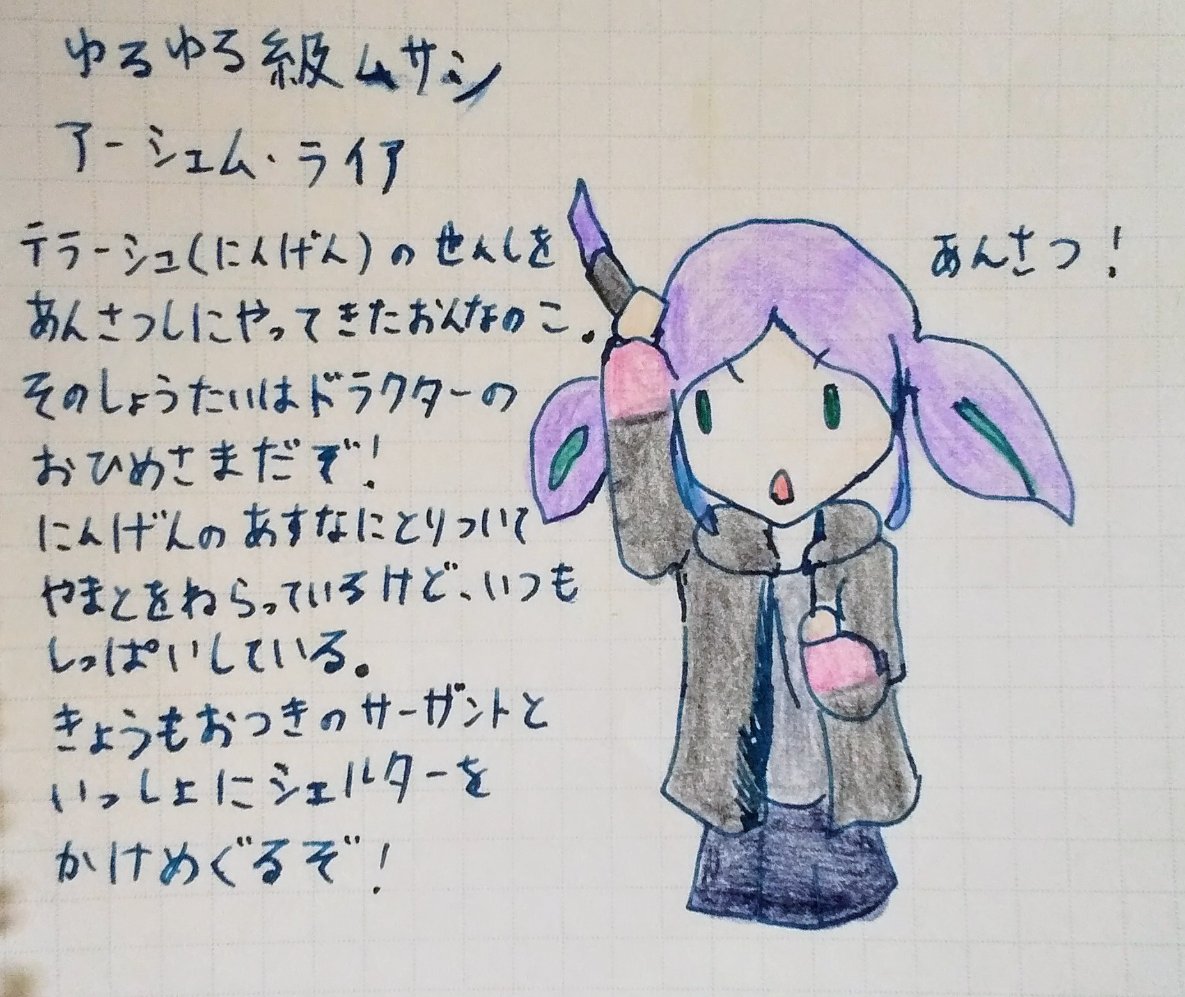 ゆるゆる級ムサシ
アーシェム・ライア
テラーシュ(にんげん)のせんしを
あんさつしにやってきたおんなのこ.
そのしょうたいはドラクターの
おひめさまだぞ!
にんげんのあすなにとりついて
やまとをねらっているけど、いつも
しっぱいしている。
きょうもおつきのサーザントと
いっしょにシェルターを
かけめぐるぞ!
あんさつ!